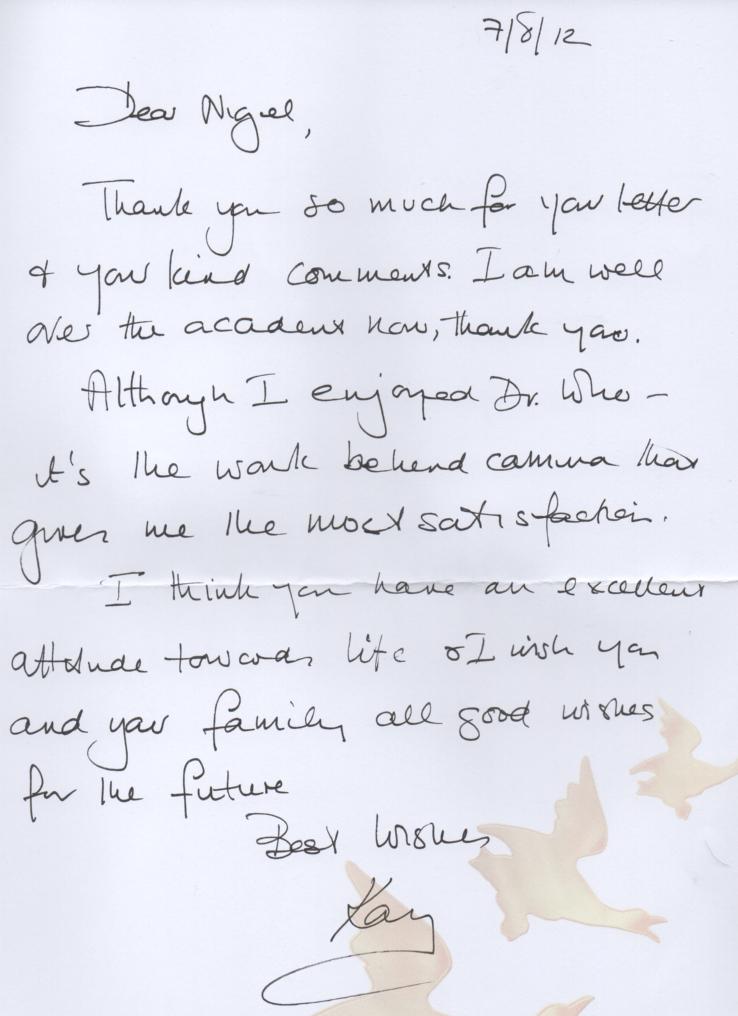 7/8/12
Dear Nigel,
Thank you so much for your letter
& your kind comments. I am well
over the accident now, thank you.
Although I enjoyed Dr. Who -
it's the work behind camera that
gives me the most satisfaction.
I think you have an excellent
attitude towards life & I wish you
and your family all good wishes
for the future
Best Wishes
Kay